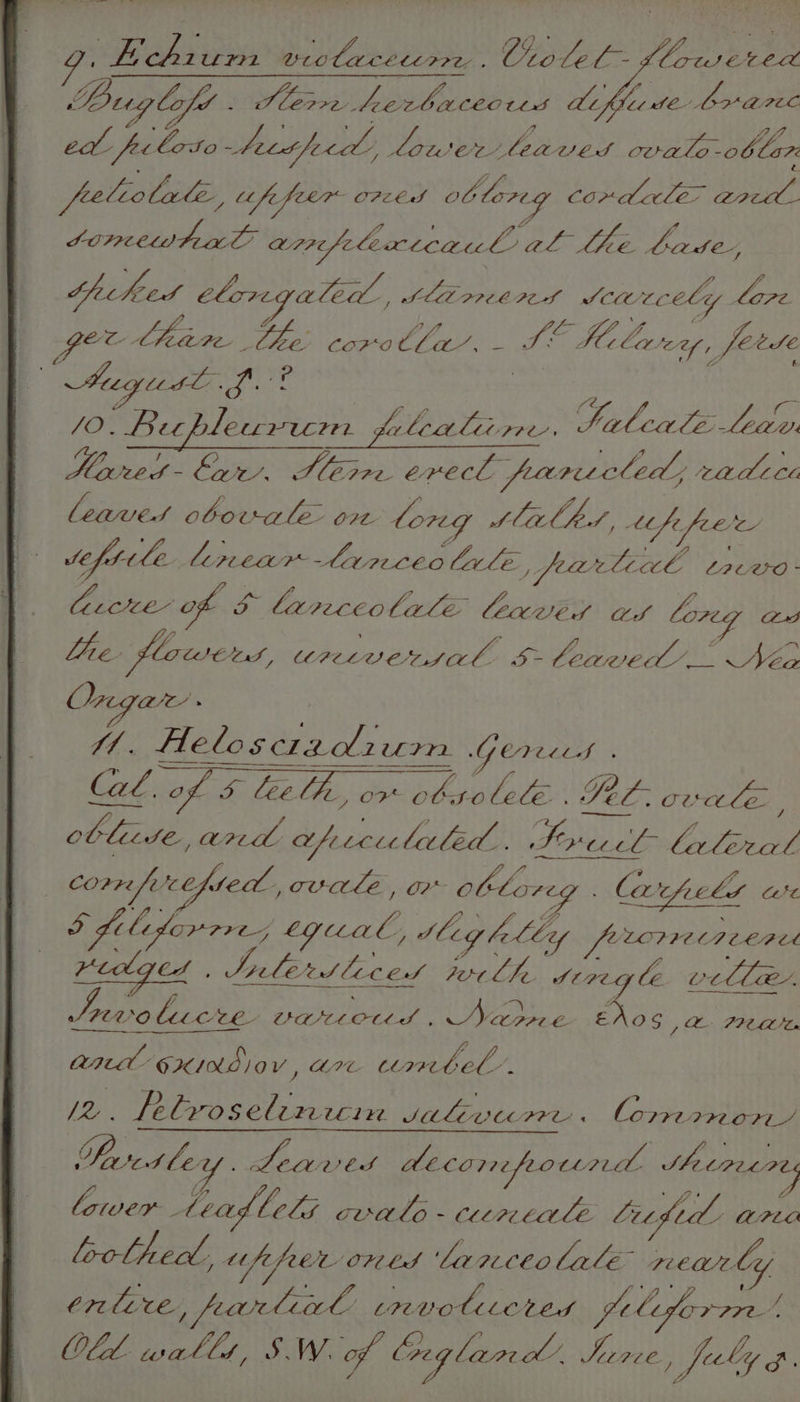 9. Echium violaceum. Violet-flowered
Buglofs. Stem herbaceous diffuse branc
ed piloso-hispid, lower leaves ovato-oblon
petiolate, upper ones oblong cordate and
somewhat amplexicaul at the base,
spikes elongated, stamens scarcely lon
ger than the corolla. - St Hilary, Jerse
August. ♂.?
10. Bupleurum falcatum. Falcate-leav
Hares-Ear. Stem erect panicled, radica
leaves obovate on long stalks, upper
sefsile linear-lanceolate, partial invo-
lucre of 5 lanceolate leaves as long as
the flowers, universal 5-leaved. — Nea
Ongar.
11. Helosciadium Genus.
Cal. of 5 teeth, or obsolete. Pet. ovate,
obtuse, and apiculated. Fruit lateral
comprefsed, ovate, or oblong. Carpels ar
5 filiform, equal, slightly prominent
ridges. Interstices with single vittæ.
Involucre various. Name ελος, a mar
and σκιαδιον, an umbel.
12. Petroselinum sativum. Common
Parsley. Leaves decompound shining
lower leaflets ovato-cuneate trifid and
toothed, upper ones lanceolate nearly
entire, partial involucres filiform.
Old walls, S.W. of England. June, July ♂.